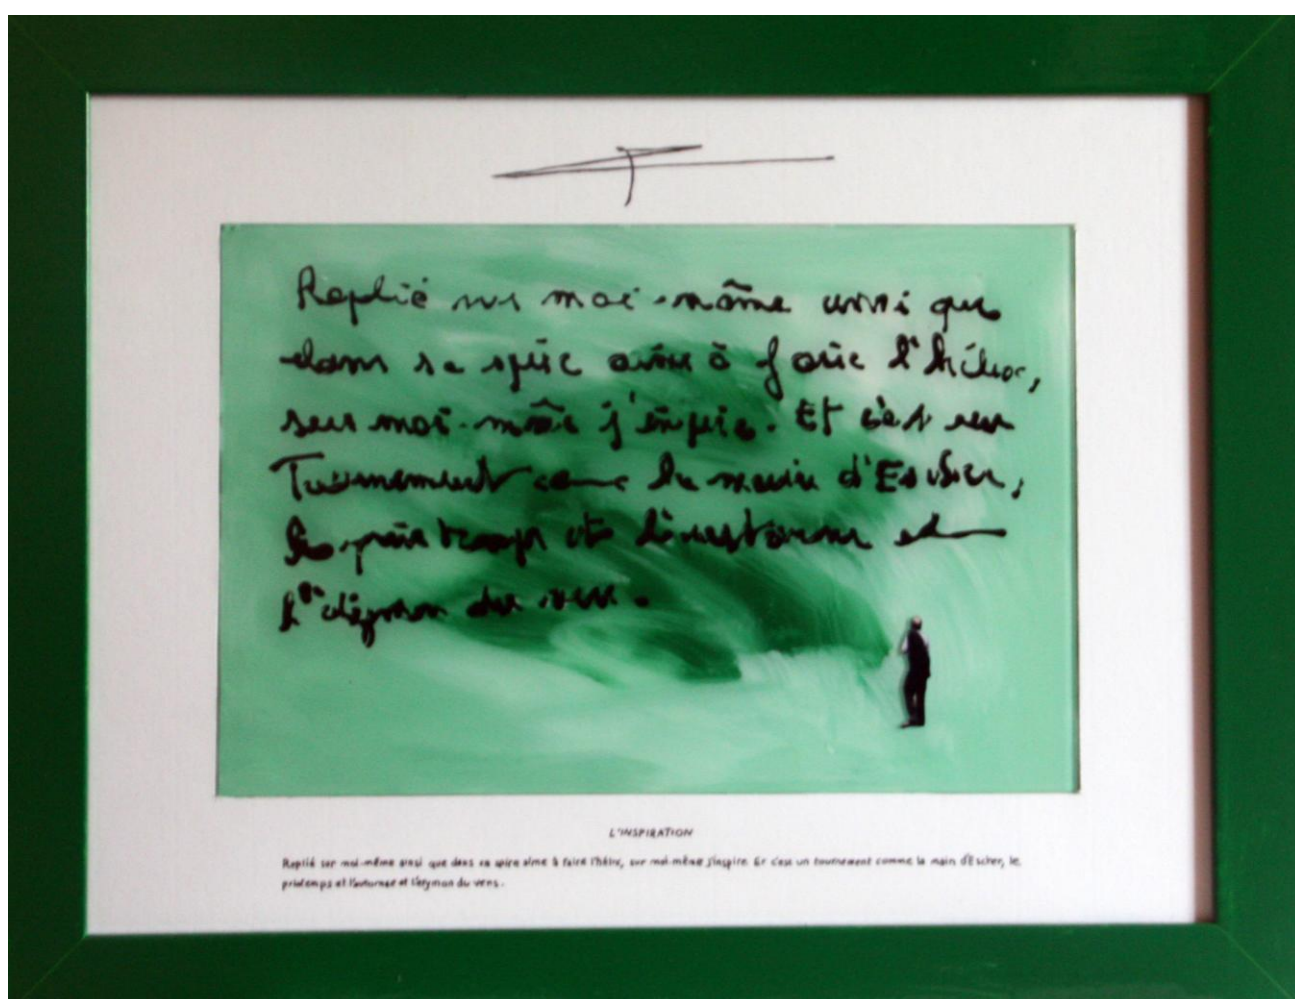 Replié sur moi-même ainsi que
dans sa spire aime à faire l'hélix,
sur moi-même j'inspire. Et c'est un
tournement comme la main d'Escher,
le printemps et l'automne et
l'étymon du vers.
L'INSPIRATION
Replié sur moi-même ainsi que dans sa spire aime à faire l'hélix, sur moi-même j'inspire. Et c'est un tournement comme la main d'Escher, le
printemps et l'automne et l'étymon du vers.